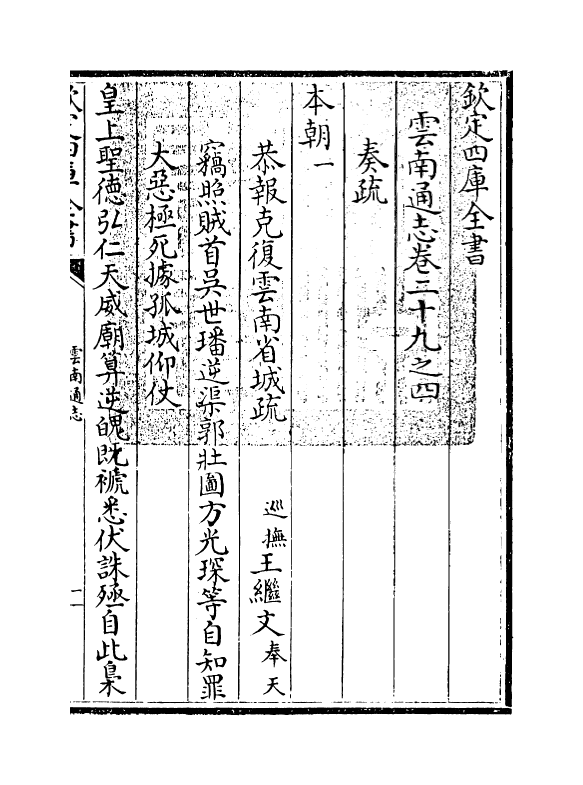 欽定四庫全書
雲南通志卷三十九之四
奏疏
本朝一
恭報克復雲南省城疏 巡撫王繼文奉天
竊照賊首吳世璠逆渠郭壯圖方光琛等自知罪
大惡極死據孤城仰仗
皇上聖德弘仁天威廟算逆魄既褫悉伏誅殛自此梟
欽定四庫全書
雲南通志